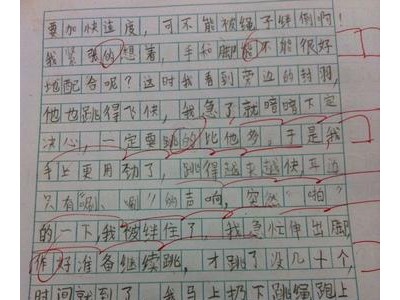 要加快速度，可不能被绳子绊倒啊！
我紧张的想着，手和脚能不能很好
地配合呢？这时我看到旁边的封羽，
他也跳得飞快，我急了就暗暗下定
决心，一定要跳的比他多。于是我
手上更用劲了，跳得越来越快，耳边
只有“唰、唰”的声响，突然“啪”
的一下，我被绊住了，我急忙伸出脚
作好准备继续跳，才跳了没几十个，
时间就到了，我马上扔下跳绳跑上